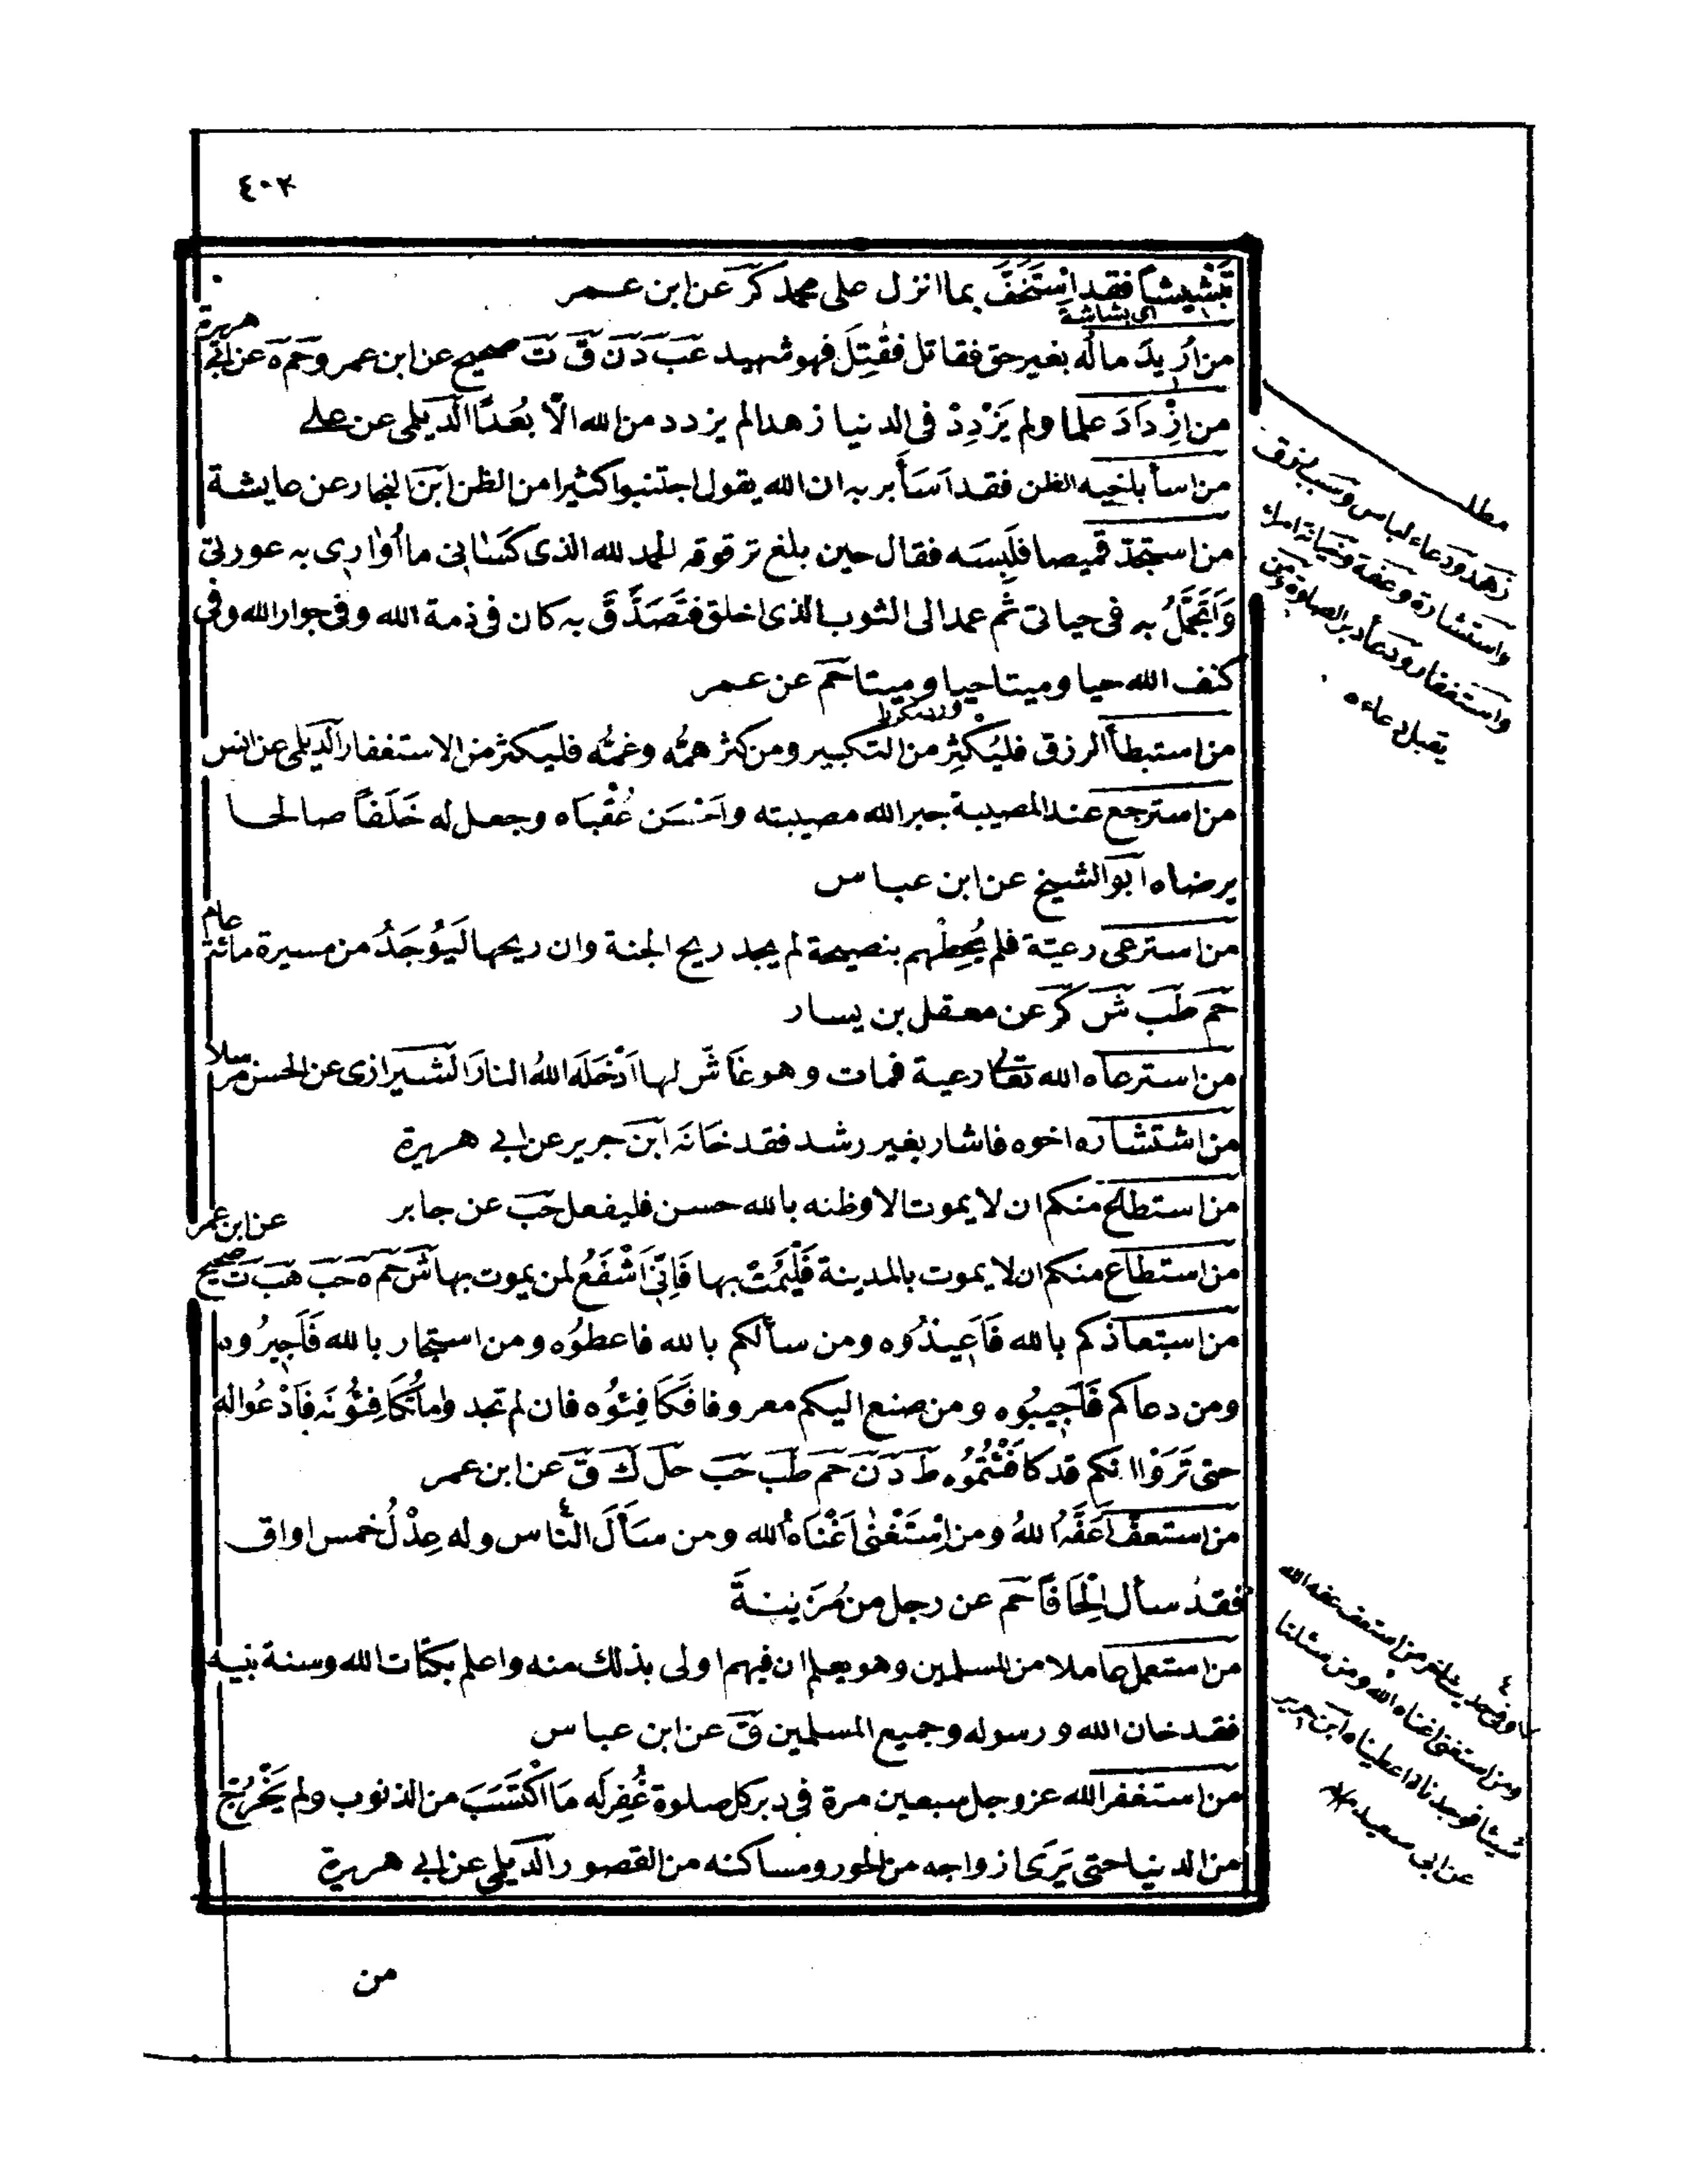 ٤٠٢
تبشيشا فقد استخف بما انزل على محمد كر عن ابن عمر
اى بشاشة
من اُريدَ مالُه بغير حق فقاتل فقُتِلَ فهو شهيد عب د ن ق ت صحيح عن ابن عمر وحم ه عن ابى هريرة
من اِزْدَادَ علما ولم يَزْدِدْ فى الدنيا زهدا لم يزدد من الله الّا بُعْدًا الديلمى عن على
من اسأ باخيه الظن فقد اَسَأ بربه ان الله يقول اجتنبوا كثيرا من الظن ابن النجار عن عايشة
من استجدّ قميصا فلَبِسَه فقال حين بلغ ترقوته الحمد لله الذى كَسَانى ما اُوارى به عورتى
وَاَتَجَمَّلُ به فى حياتى ثم عمد الى الثوب الذى اخلق فتَصَدَّقَ به كان فى ذمة الله وفى جوار الله وفى
كنف الله حيا وميتا حيا وميتا حم عن عمر
من استبطأ الرزق فليُكْثِرْ من التكبير ومن كثر همُّه وغمُّه فليكثر من الاستغفار الديلمى عن انس
من استرجع عند المصيبة جبر الله مصيبته واَحْسَن عُقْبَاه وجعل له خَلَفاً صالحا
يرضاه ابو الشيخ عن ابن عباس
من استرعى رعيّة فلم يُحِطْهم بنصيحة لم يجد ريح الجنة وان ريحها لَيُوجَدُ من مسيرة مائة عام
حم طب ش كر عن معقل بن يسار
من استرعاه الله تعالى رعية فمات وهو غَاشّ لها اَدْخَلَه اللهُ النارَ الشيرازى عن الحسن مرسلا
من اشتشاره اخوه فاشار بغير رشد فقد خَانَه ابن جرير عن ابى هريرة
من استطاع منكم ان لا يموت الا وظنه بالله حسن فليفعل حب عن جابر
من استطاع منكم ان لا يموت بالمدينة فَلْيَمُتْ بها فَاِنّى اَشْفَعُ لمن يموت بها ش حم ه حب هب ت صحيح عن ابن عمر
من استعاذكم بالله فَاَعِيذُوه ومن سألكم بالله فاعطوُه ومن استجار بالله فَاَجِيرُوه
ومن دعاكم فَاَجِيبُوه ومن صنع اليكم معروفا فَكَافِئُوُه فان لم تجدوا ما تُكَافِئُونَه فَادْعُوا له
حتى تَرَوْا انكم قد كافَئْتُمُوُه ط د ن حم طب حب حل ك ق عن ابن عمر
من استعفّ اَعَفَّهُ اللهُ ومن اِسْتَغْنٰى اَغْنَاهُ الله ومن سَأَلَ النّاس وله عِدْلُ خمس اواق
فقد سأل اِلْحَافاً حم عن رجل من مُزَيْنَةَ
من استعمل عاملا من المسلمين وهو يعلم ان فيهم اولى بذلك منه واعلم بكتاب الله وسنة نبيه
فقد خان الله ورسوله وجميع المسلمين ق عن ابن عباس
من استغفر الله عز وجل سبعين مرة فى دبر كل صلوة غُفِرَ له مَا اكْتَسَبَ من الذنوب ولم يَخْرُجْ
من الدنيا حتى يَرَى ازواجه من الحور ومساكنه من القصور الديلمى عن ابى هريرة
من
مطلب
زهد ودعاء لباس وسبب رزق
واستشارة وعفة
واستغفار ودعاء دبر الصلوة ومن
يقبل دعاءه
٤
وفى حديث اخر من استعف عفه الله
ومن استغنى اغناه الله ومن سئلنا
شيئا فوجدناه اعطيناه ابن جرير
عن ابى سعيد